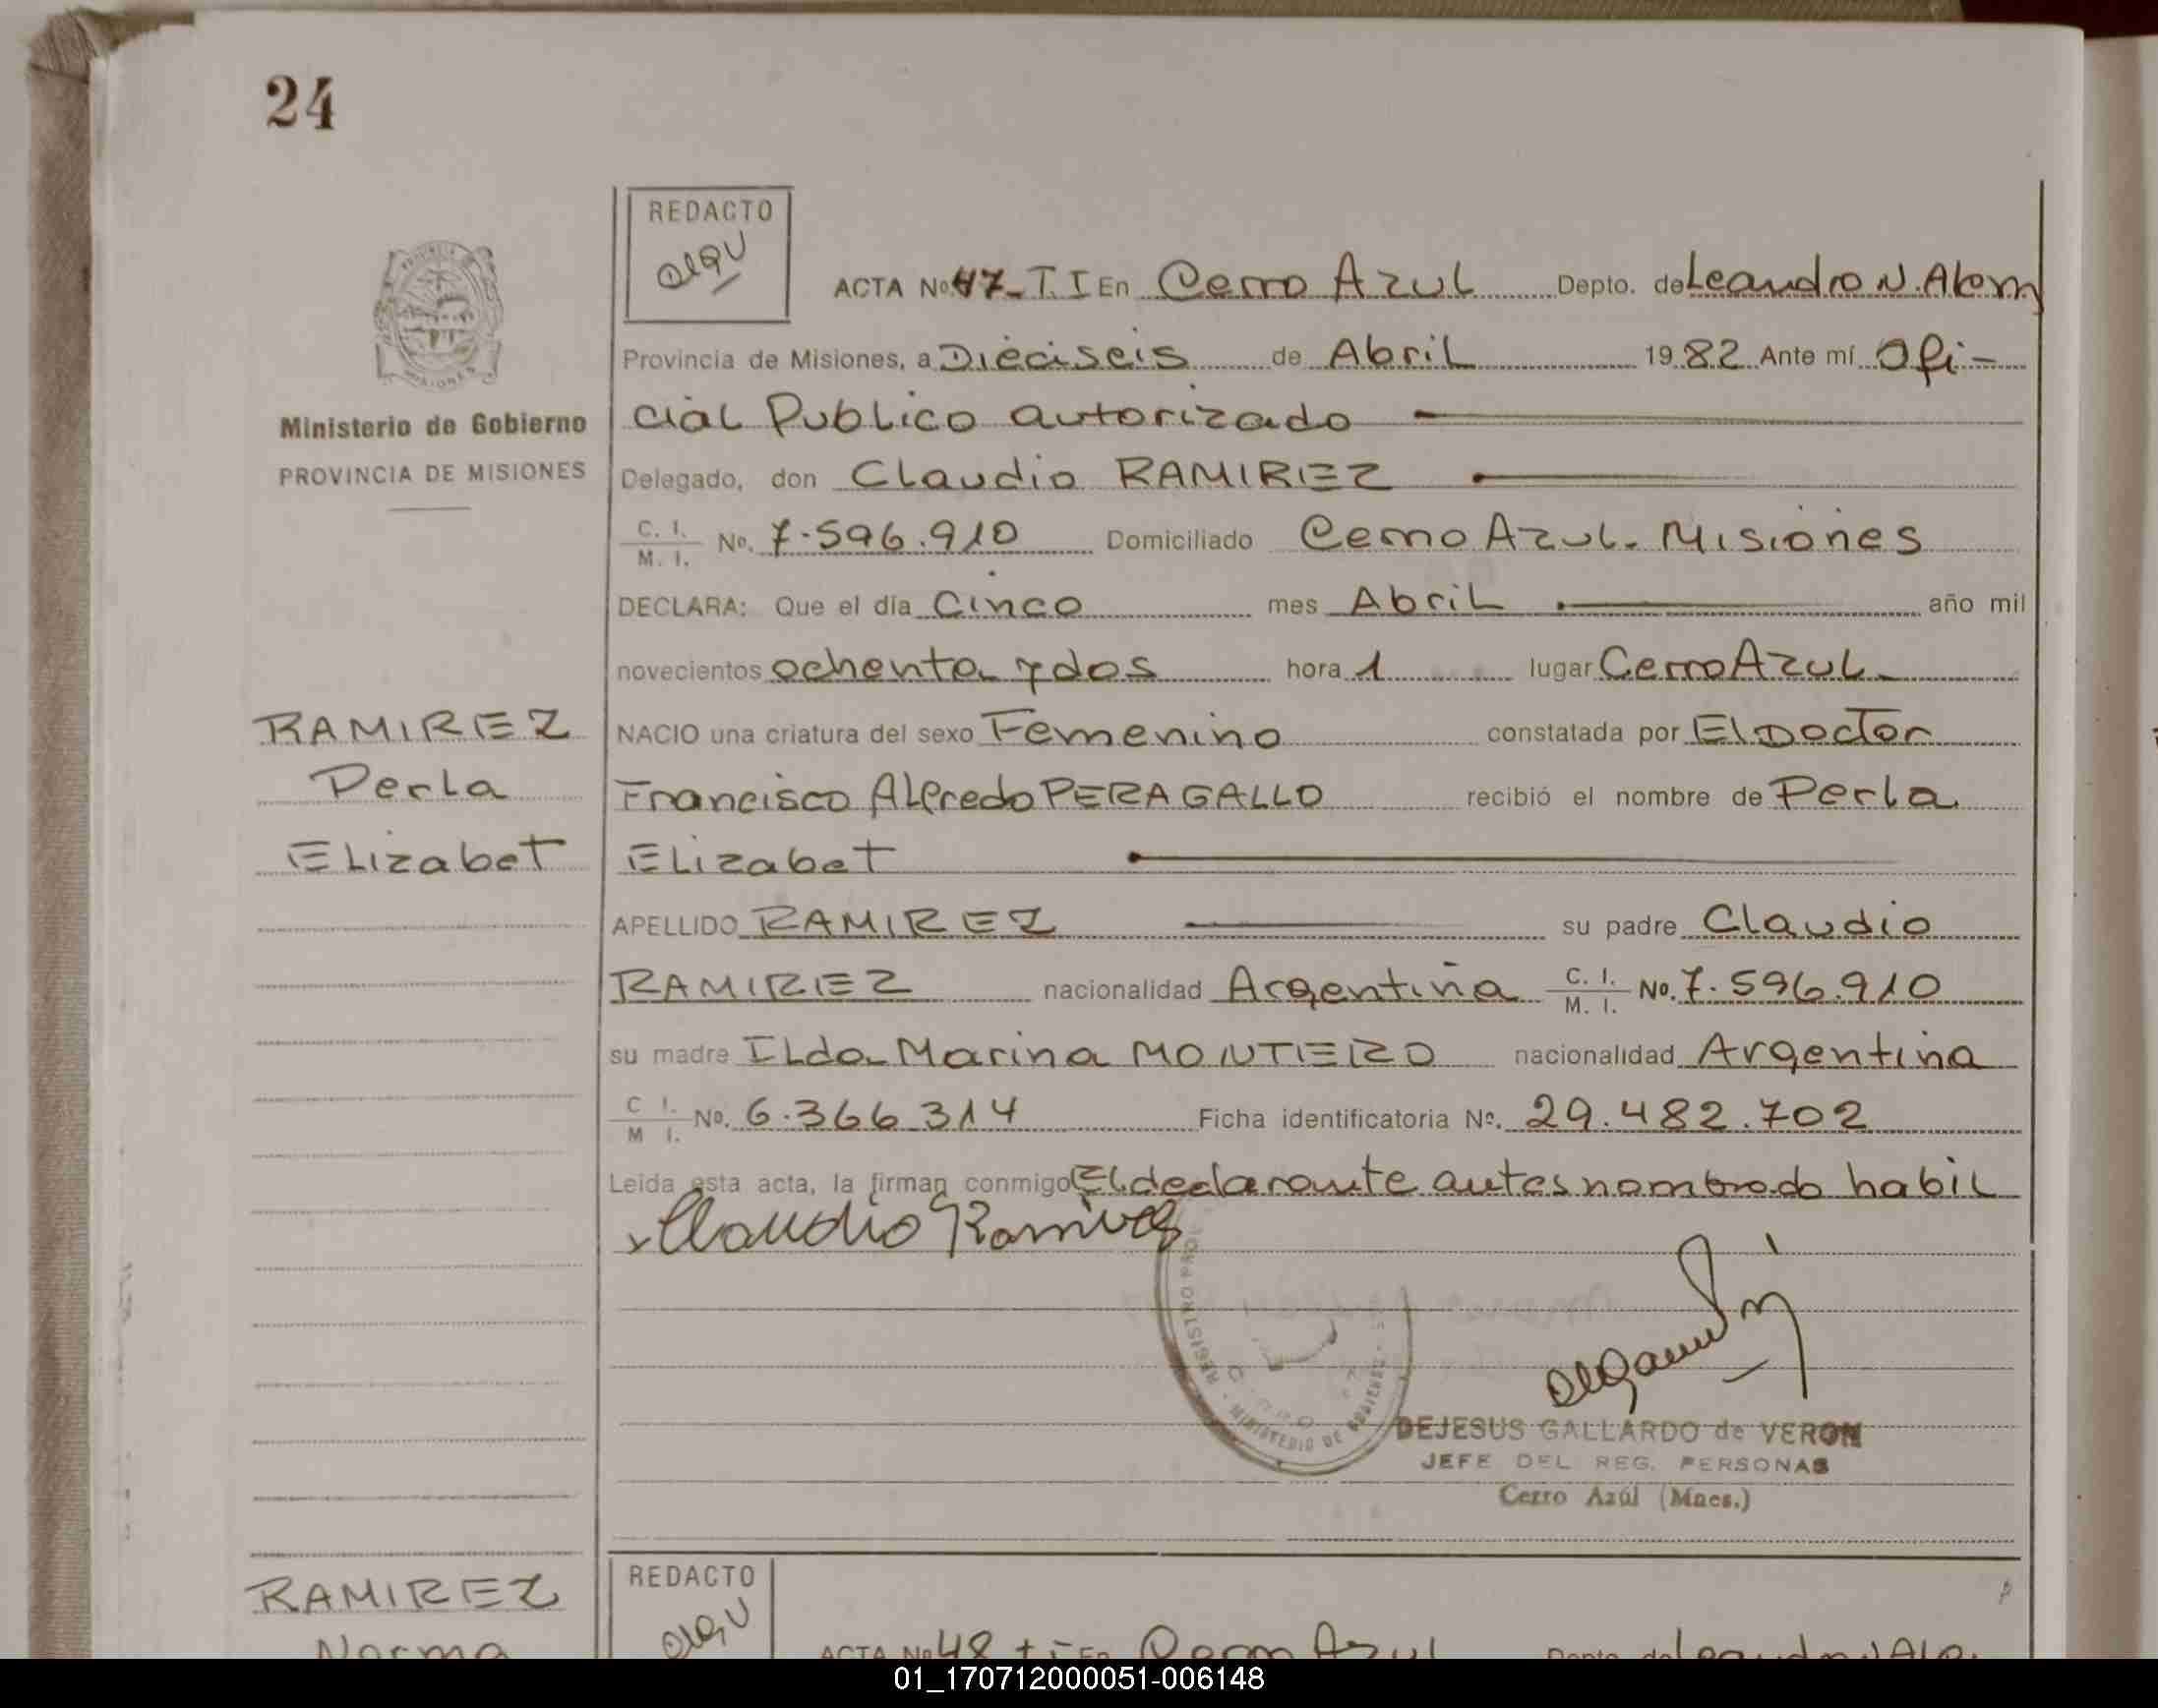 24
REDACTO
ACTA No. 47-T.I En Cerro Azul Depto. de Leandro N. Alem
Provincia de Misiones, a Dieciseis de Abril 1982 Ante mí Ofi-
cial Publico autorizado
Ministerio de Gobierno
PROVINCIA DE MISIONES
Delegado, don Claudio RAMIREZ
C. I. / M. I. No. 7.596.910 Domiciliado Cerro Azul. Misiones
DECLARA: Que el día Cinco mes Abril año mil
novecientos ochenta y dos hora 1 lugar Cerro Azul
RAMIREZ
Perla
Elizabet
NACIO una criatura del sexo Femenino constatada por El Doctor
Francisco Alfredo PERAGALLO recibió el nombre de Perla
Elizabet
APELLIDO RAMIREZ su padre Claudio
RAMIREZ nacionalidad Argentina C. I. / M. I. No. 7.596.910
su madre Ilda Marina MONTIERO nacionalidad Argentina
C I. / M I. No. 6.366.314 Ficha identificatoria No. 29.482.702
Leída esta acta, la firman conmigo El declarante antes nombrado habil
x Claudio Ramirez
REGISTRO
MINISTERIO DE GOBIERNO
DEJESUS GALLARDO de VERON
JEFE DEL REG. PERSONAS
Cerro Azúl (Mnes.)
RAMIREZ
Norma
REDACTO
ACTA No 48 En Cerro Azul Depto. de Leandro N Ale
01_170712000051-006148